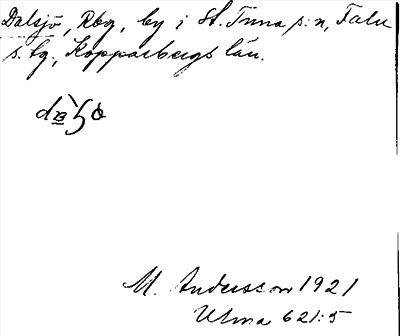 Dalsjö, Rbg, by i St. Tuna s:n, Falu
s. lg., Kopparbergs län.
M. Andersson 1921
Ulma 621:5